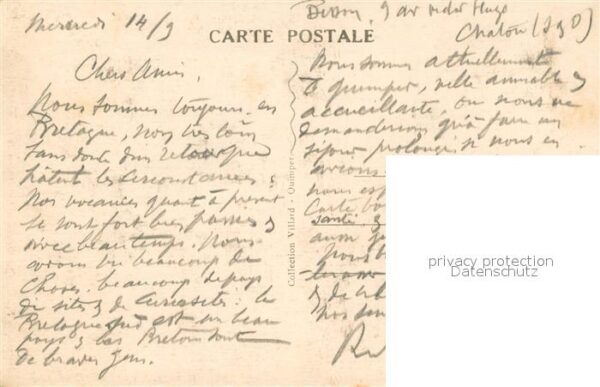 Mercredi 14/9
9 av Victor Hugo
Chatou (S & O)
CARTE POSTALE
Chers Amis,
Nous sommes toujours en
Bretagne, non très loin
sans doute d'un retour que
hâtent les circonstances ;
Nos vacances quant à présent
se sont fort bien passées &
avec beau temps. Nous
avons vu beaucoup de
Choses, beaucoup de pays
de sites & de curiosités : la
Bretagne sud est un beau
pays & les Bretons sont
de braves gens.
Collection Villard - Quimper
Nous sommes actuellement
à Quimper, ville aimable &
accueillante, où nous ne
demanderions qu'à faire un
séjour prolongé si nous en
avions
nous
Carte
santé &
aussi
vous
&
nos
privacy protection
Datenschutz